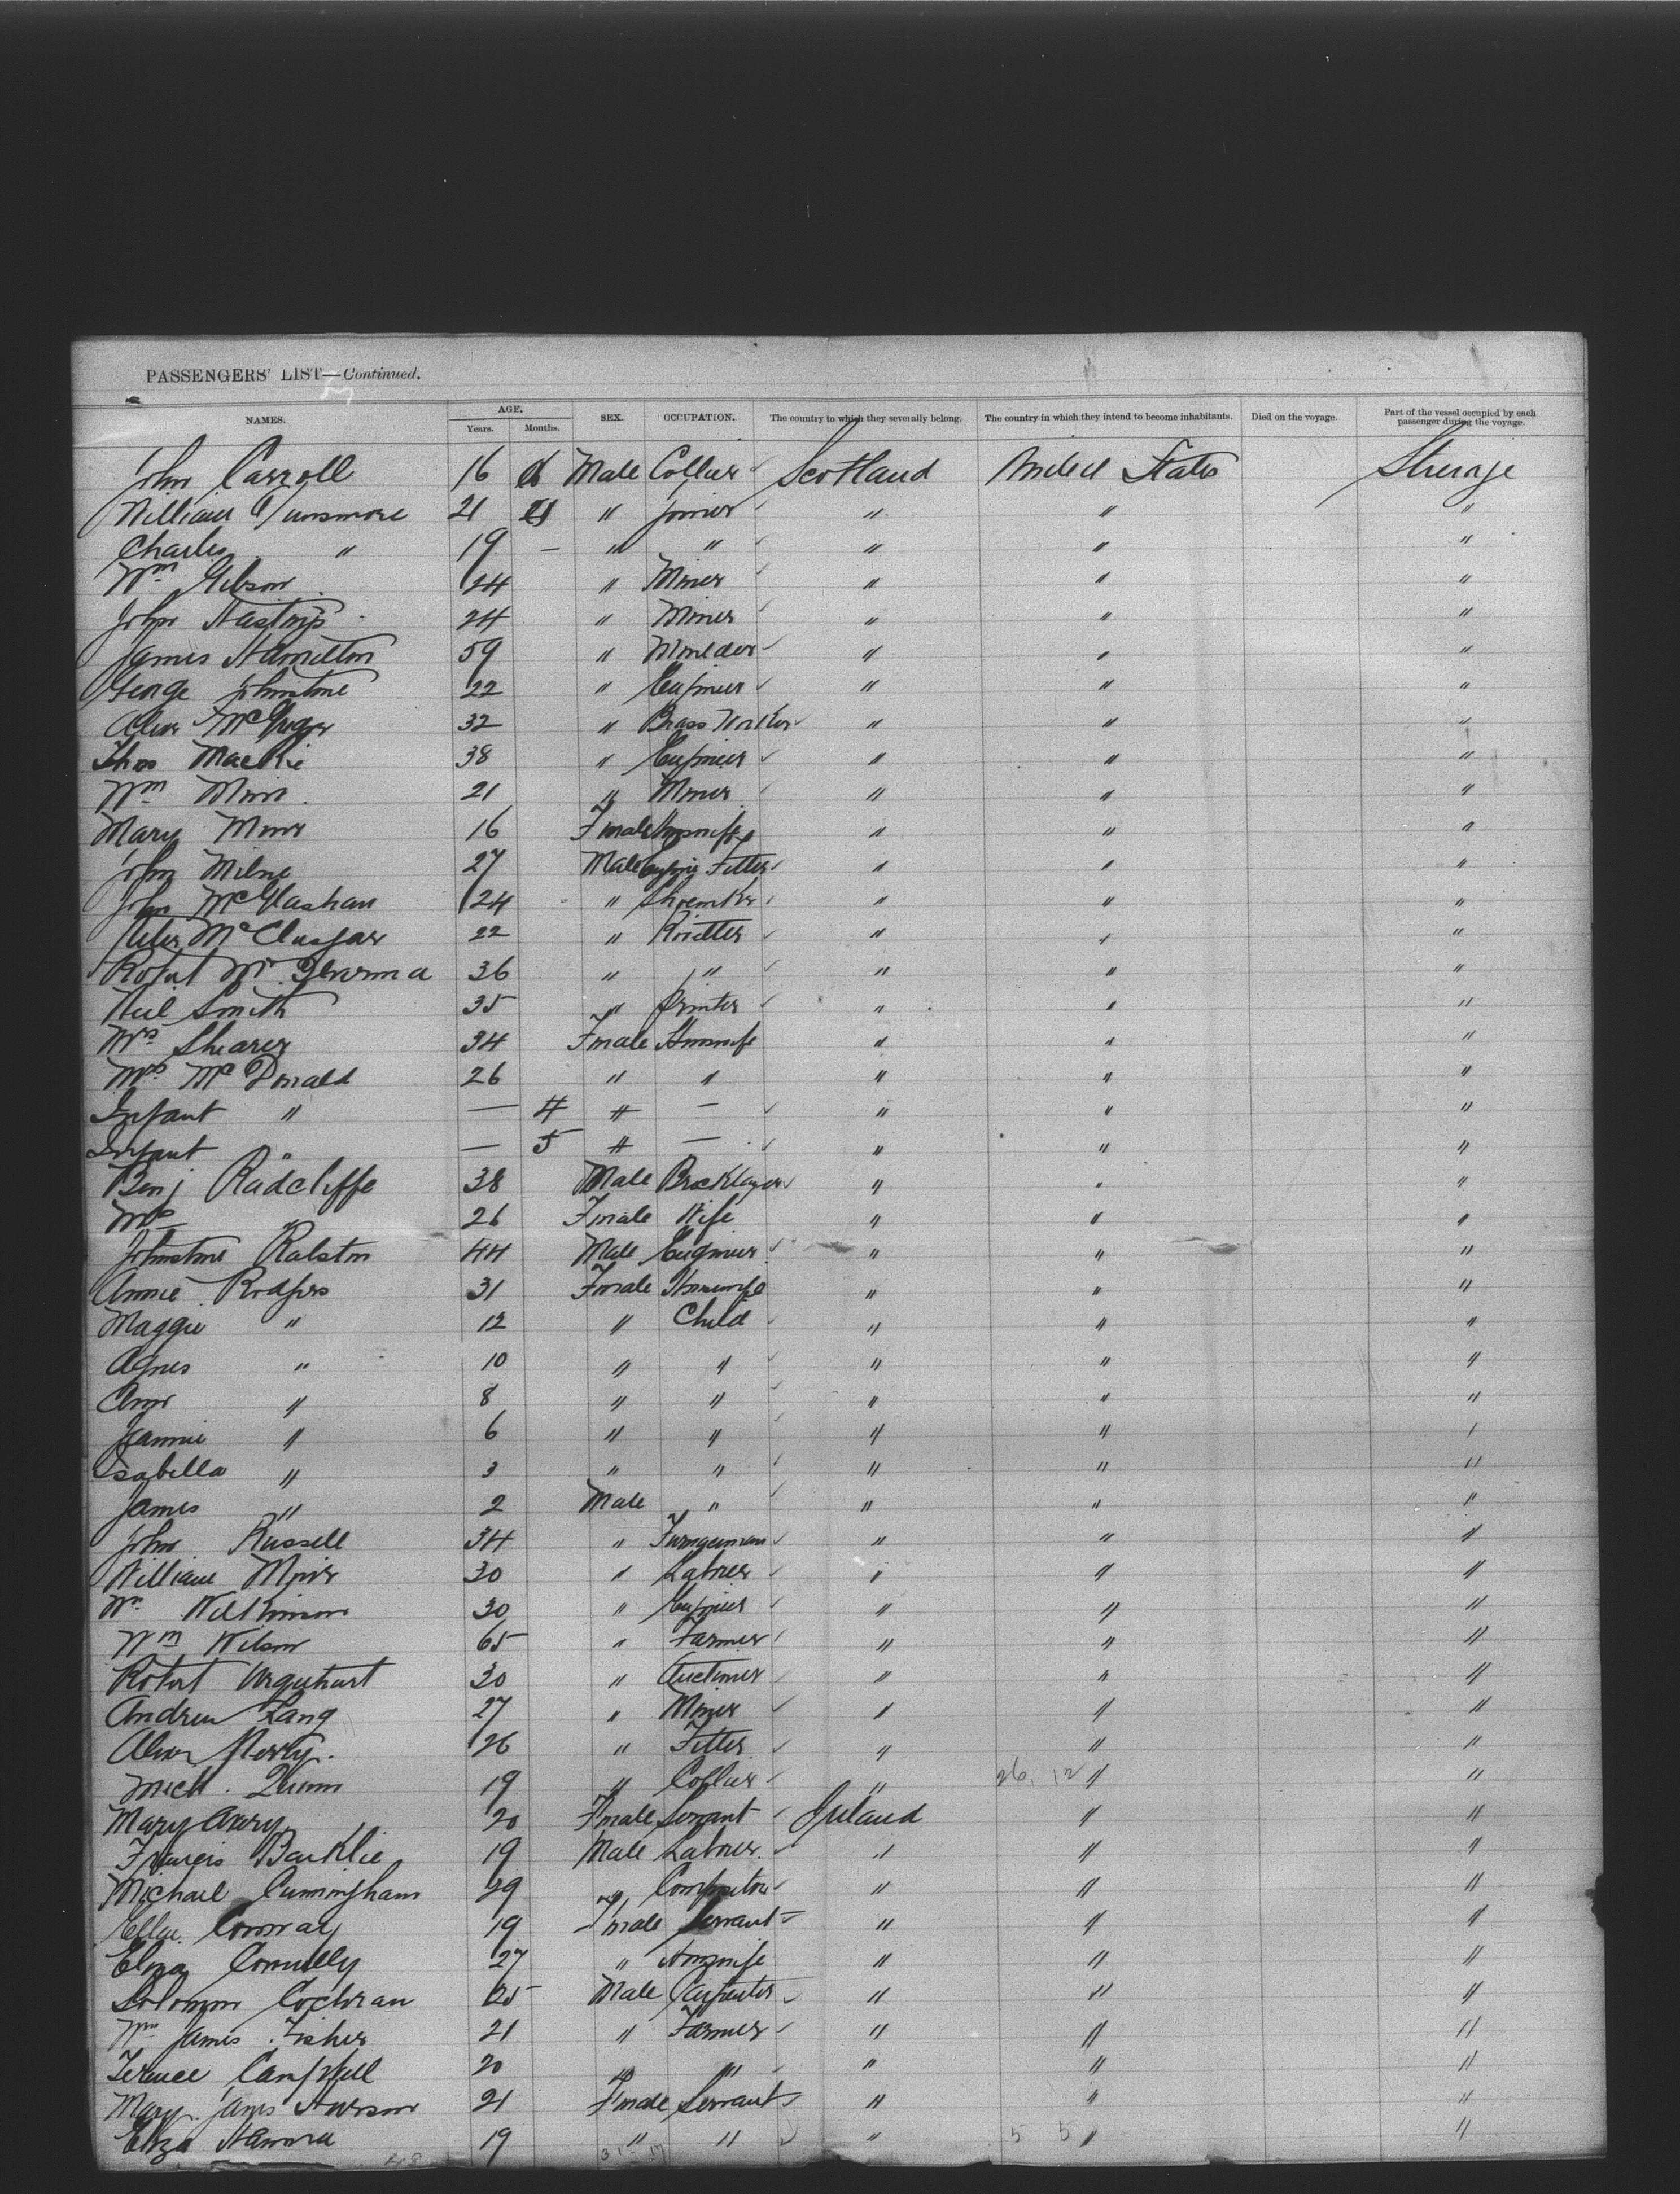 PASSENGERS' LIST—Continued.
NAMES. AGE. Years. Months. SEX. OCCUPATION. The country to which they severally belong. The country in which they intend to become inhabitants. Died on the voyage. Part of the vessel occupied by each passenger during the voyage.
John Carroll 16 Male Collier Scotland United States Steerage
William Dunsmore 21 " Joiner " " "
Charles " 19 — " " " " "
Wm Gibson 24 " Miner " " "
John Hastings 24 " Miner " " "
James Hamilton 59 " Moulder " " "
George Johnstone 22 " Engineer " " "
Alexr McGregor 32 " Brass Worker " " "
Thos MacKie 38 " Engineer " " "
Wm 21 " Miner " " "
Mary 16 Female Housewife " " "
John Milne 27 Male Engine Fitter " " "
John McGlashan 24 " Shoemkr " " "
Peter 22 " Rivetter " " "
Robert 36 " " " " "
Neil Smith 35 " Printer " " "
Mrs Shearer 34 Female Housewife " " "
Mrs McDonald 26 " " " " "
Infant " — 4 " — " " "
Infant " — 5 " — " " "
Benj Radcliffe 38 Male Bricklayer " " "
Mrs " 26 Female Wife " " "
Johnstone Ralston 44 Male Engineer " " "
Annie Rodgers 31 Female Housewife " " "
Maggie " 12 " Child " " "
Agnes " 10 " " " " "
Ann " 8 " " " " "
Jeannie " 6 " " " " "
Isabella " 3 " " " " "
James " 2 Male " " " "
John Russell 34 " " " "
William 30 " Laborer " " "
Wm Wilkinson 30 " Engineer " " "
Wm Wilson 65 " Farmer " " "
Robert Urquhart 30 " " " "
Andrew Lang 27 " Miner " " "
Alexr 26 " Fitter " " "
Mich. Quinn 19 " Collier " 26. 12 " "
Mary 20 Female Servant Ireland " "
Francis Barklie 19 Male Laborer " " "
Michael Cunningham 29 " Compositor " " "
Ellen Conway 19 Female Servant " " "
Eliza Connelly 27 " Housewife " " "
Solomon Cochran 25 Male Carpenter " " "
Wm James Fisher 21 " Farmer " " "
Terence Campbell 20 " " " " "
Mary 21 Female Servant " " "
Eliza 19 " " " 5 5 " "
48 31 17